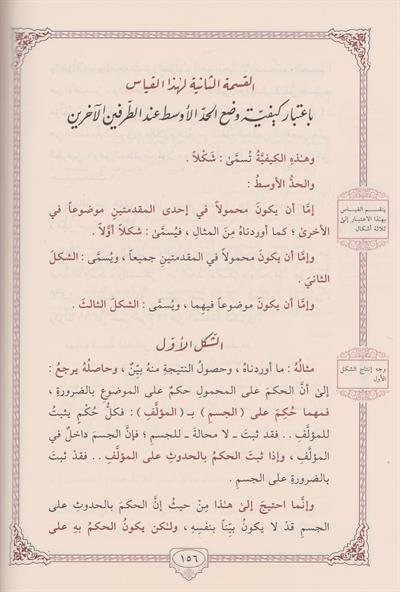 القسمة الثانية لهذا القياس
باعتبار كيفيّة وضع الحدّ الأوسط عند الطرفين الآخرين
وهذهِ الكيفيَّةُ تُسمَّىٰ : شَكْلاً .
والحدُّ الأوسطُ :
إمَّا أن يكونَ محمولاً في إحدى المقدمتينِ موضوعاً في
الأخرىٰ ؛ كما أوردناهُ مِنَ المثالِ ، فيُسمَّىٰ : شكلاً أوَّلاً .
وإمَّا أن يكونَ محمولاً في المقدمتينِ جميعاً ، ويُسمَّىٰ : الشكلَ
الثانيَ .
وإمَّا أن يكونَ موضوعاً فيهِما ، ويُسمَّى : الشكلَ الثالثَ .
ينقسم القياس
بهذا الاعتبار إلىٰ
ثلاثة أشكال
الشكل الأوّل
مثالُهُ : ما أوردناهُ ، وحصولُ النتيجةِ منهُ بيِّنٌ ، وحاصلُهُ يرجعُ :
إلىٰ أنَّ الحكمَ على المحمولِ حكمٌ على الموضوعِ بالضرورةِ ،
فمهما حُكِمَ على ( الجسمِ ) بـ ( المؤلَّفِ ) : فكلُّ حُكْمٍ يثبتُ
للمؤلَّفِ . . فقد ثبتَ ـ لا محالةَ ـ للجسمِ ؛ فإنَّ الجسمَ داخلٌ في
المؤلَّفِ ، وإذا ثبتَ الحكمُ بالحدوثِ على المؤلَّفِ . . فقدْ ثبتَ
بالضرورةِ على الجسمِ .
وجه إنتاج الشكل
الأول
وإنَّما احتيجَ إلىٰ هـٰذا مِنْ حيثُ إنَّ الحكمَ بالحدوثِ على
الجسمِ قدْ لا يكونُ بيِّناً بنفسِهِ ، ولـٰكن يكونُ الحكمُ بهِ على
١٥٦